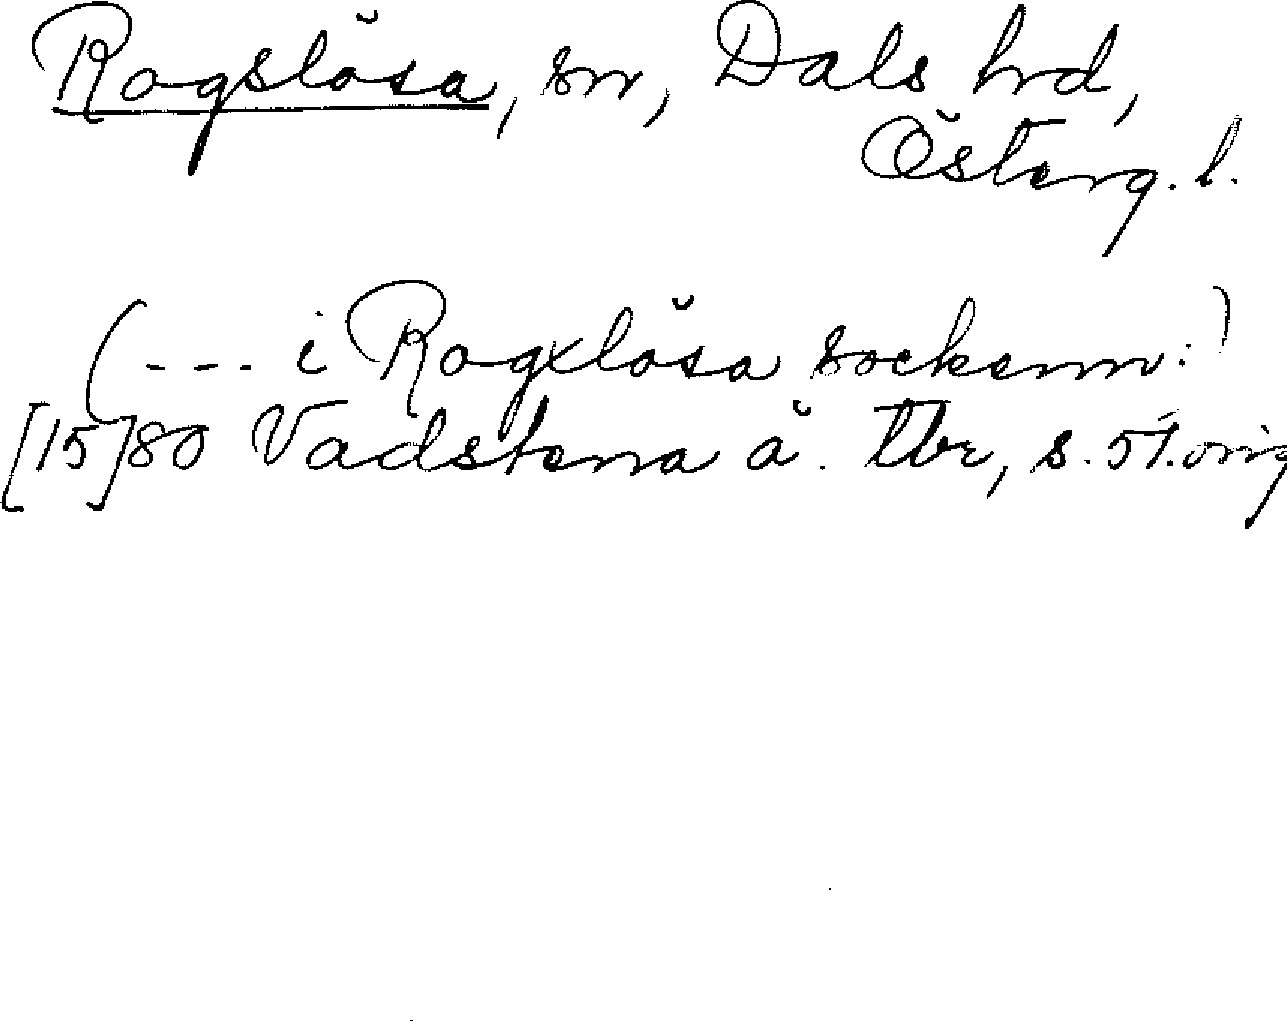 Rogslösa, sn, Dals hd,
Österg. l.
(--- i Rogxlösa sockenn:)
[15]80 Vadstena ä. tbr, s. 51. orig